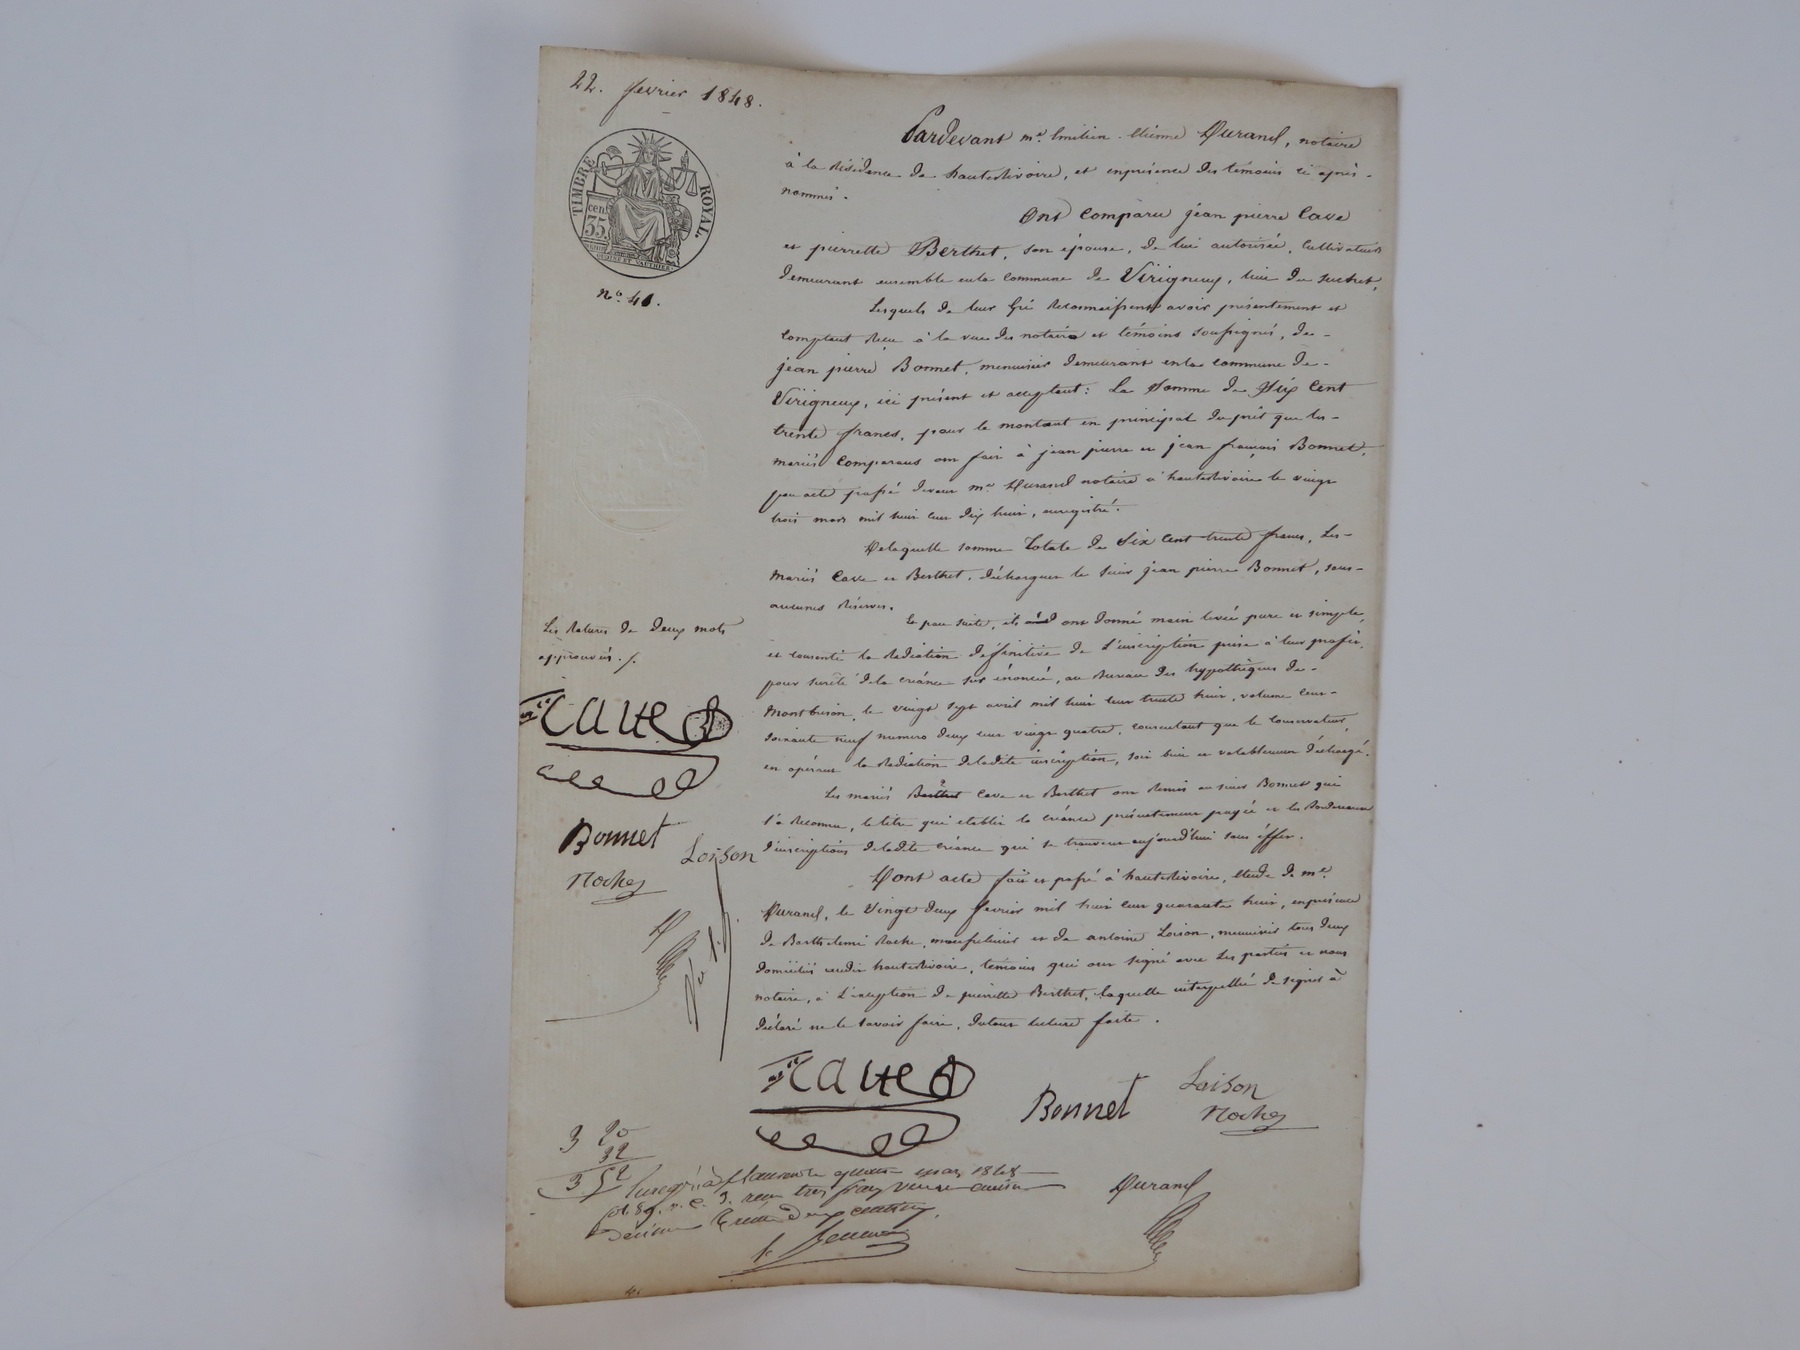 22. fevrier 1848.
TIMBRE ROYAL.
35 cent
n.º 41.
Pardevant m.e Emilien Etienne Durand, notaire
à la Résidence de hauterivoire, et enprésence des témoins ci après-
nommés.
Ont Comparu jean pierre Cave
et pierrette Berthet, son épouse, de lui autorisée, Cultivateurs
demeurant ensemble enla Commune de Virigneux, lieu de suchet,
Lesquels de leur Gré Reconnaissent avoir présentement et
Comptant Reçu à la vue des notaire et témoins soussignés, de-
jean pierre Bonnet, menuisier demeurant enla commune de-
Virigneux, ici présent et acceptant: La Somme de Six Cent
trente francs, pour le montant en principal du prêt que les-
mariés Comparans ont fait à jean pierre et jean françois Bonnet,
par acte passé devant m.e Durand notaire à hauterivoire le vingt
trois mars mil huit cent dix huit, enregistré.
Delaquelle somme Totale de Six Cent trente francs, Les-
mariés Cave et Berthet, déchargent le sieur jean pierre Bonnet, sans-
aucunes Réserves.
Et par suite, ils ont donné main levée pure et simple,
et consenti la Radiation définitive de L'inscription prise à leur profit,
pour sureté dela créance sus énoncée, au Bureau des hypothèques de-
Montbrison, le vingt sept avril mil huit cent trente huit, volume cent-
soixante neuf numero deux cent vingt quatre, consentant que le Conservateur,
en opérant la Radiation deladite inscription, soit bien et valablement déchargé.
Les mariés Berthet Cave et Berthet ont Remis au sieur Bonnet qui
l'a Reconnu, le titre qui etablit la créance présentement payée et les Bordereaux
d'inscriptions deladite créance qui se trouvent aujourd'hui sans éffet.
Dont acte fait et passé à hauterivoire, étude de m.e
Durand, le Vingt deux fevrier mil huit cent quarante huit, enprésence
de Barthelemi Roche, et de antoine Loison, menuisier tous deux
domiciliés audit hauterivoire, témoins qui ont signé avec Les parties et nous
notaire, à L'exception de pierrette Berthet, laquelle interpellée de signer à
déclaré ne le savoir faire, dutout lecture faite.
Les Ratures de deux mots
approuvées.
Cave
Bonnet
Loison
Roche
D
Cave
Bonnet
Loison
Roche
Durand
3 20
32
3 52
Enregistré à St Laurent le quatre mars 1848
fol. 89. r. C. 9. reçu trois francs vingt centimes
Décime trente deux centimes.